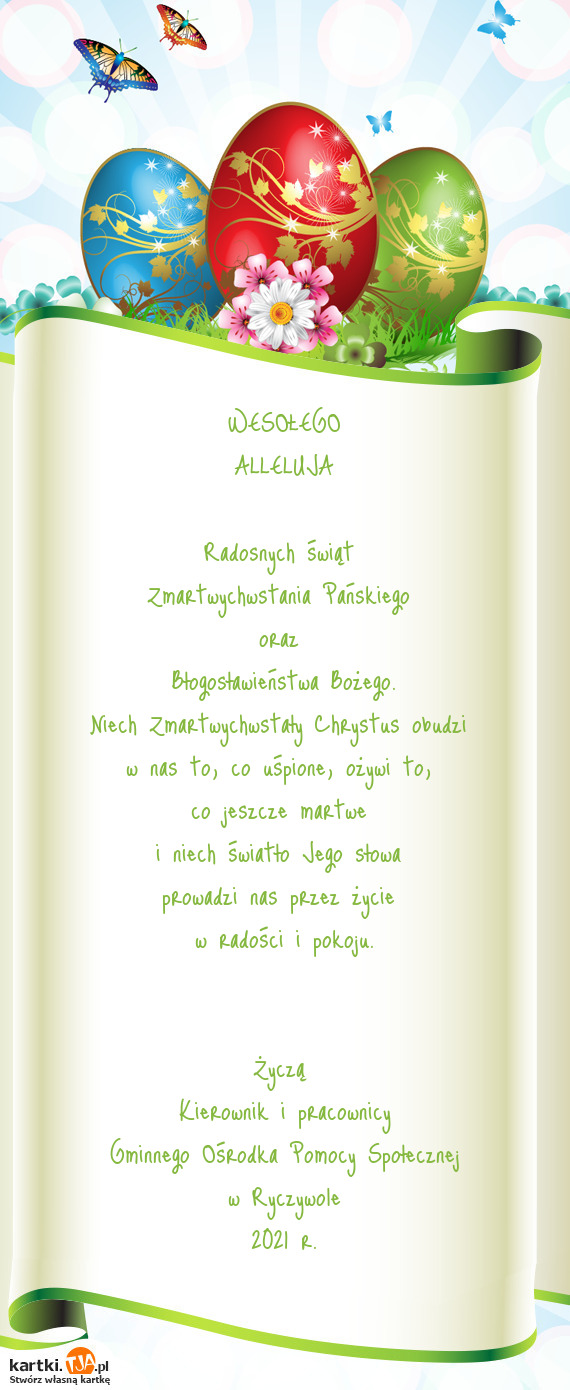 WESOŁEGO
ALLELUJA
Radosnych świąt
Zmartwychwstania Pańskiego
oraz
Błogosławieństwa Bożego.
Niech Zmartwychwstały Chrystus obudzi
w nas to, co uśpione, ożywi to,
co jeszcze martwe
i niech światło Jego słowa
prowadzi nas przez życie
w radości i pokoju.
Życzą
Kierownik i pracownicy
Gminnego Ośrodka Pomocy Społecznej
w Ryczywole
2021 r.
kartki.TJA.pl
Stwórz własną kartkę